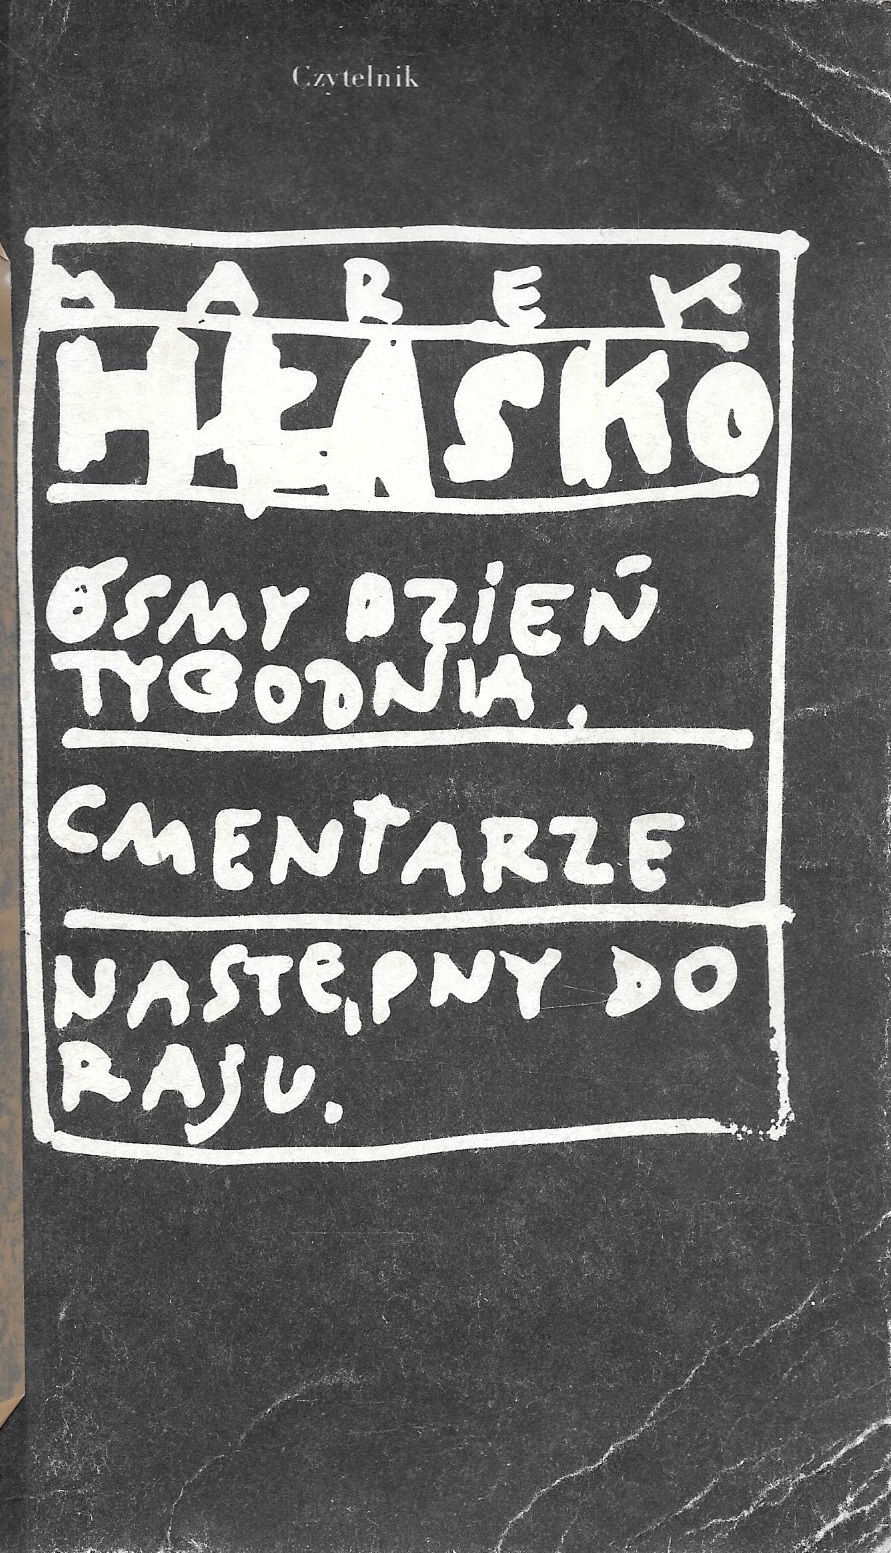 Czytelnik
MAREK
HŁASKO
ÓSMY DZIEŃ
TYGODNIA.
CMENTARZE
NASTĘPNY DO
RAJU.